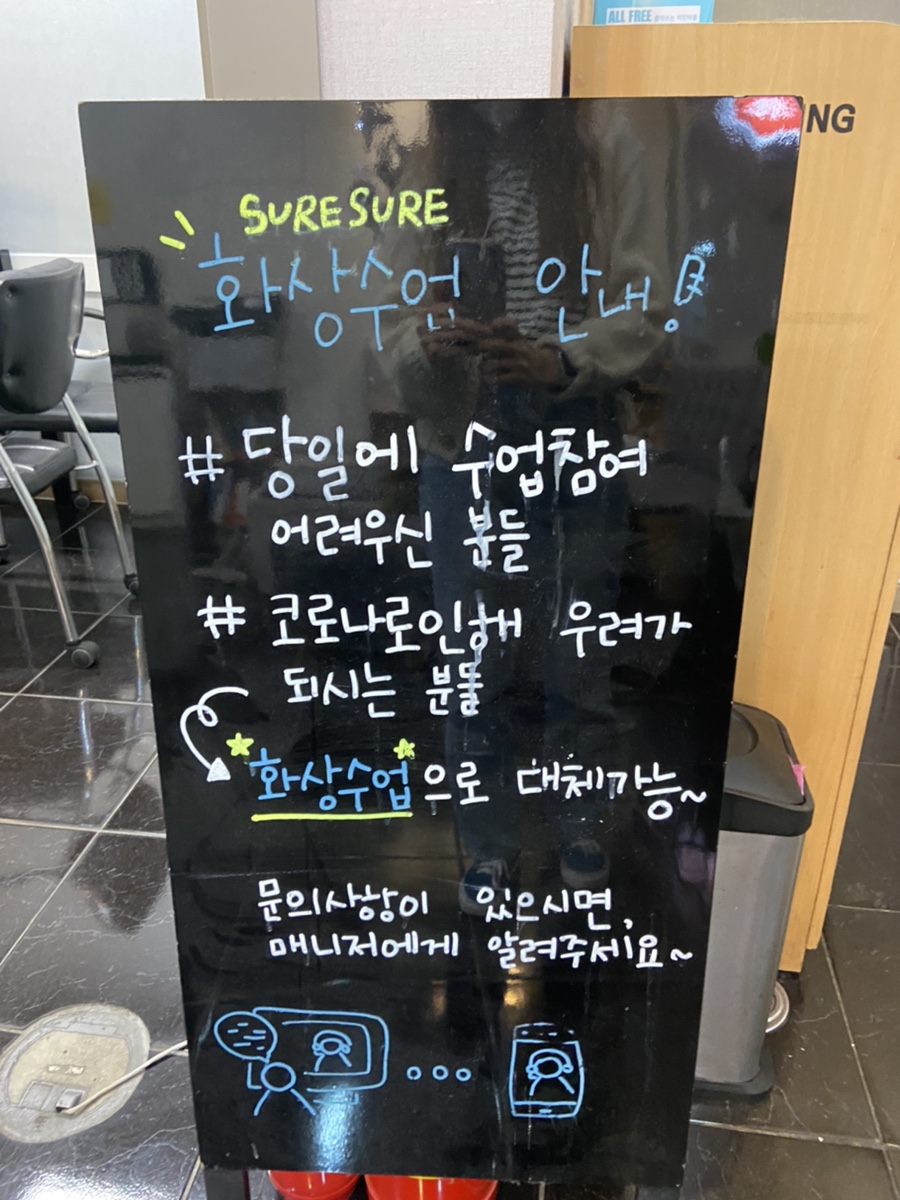 ALL FREE
NG
SURESURE
화상수업 안내!
# 당일에 수업참여
어려우신 분들
# 코로나로인해 우려가
되시는 분들
화상수업으로 대체가능~
문의사항이 있으시면,
매니저에게 알려주세요~